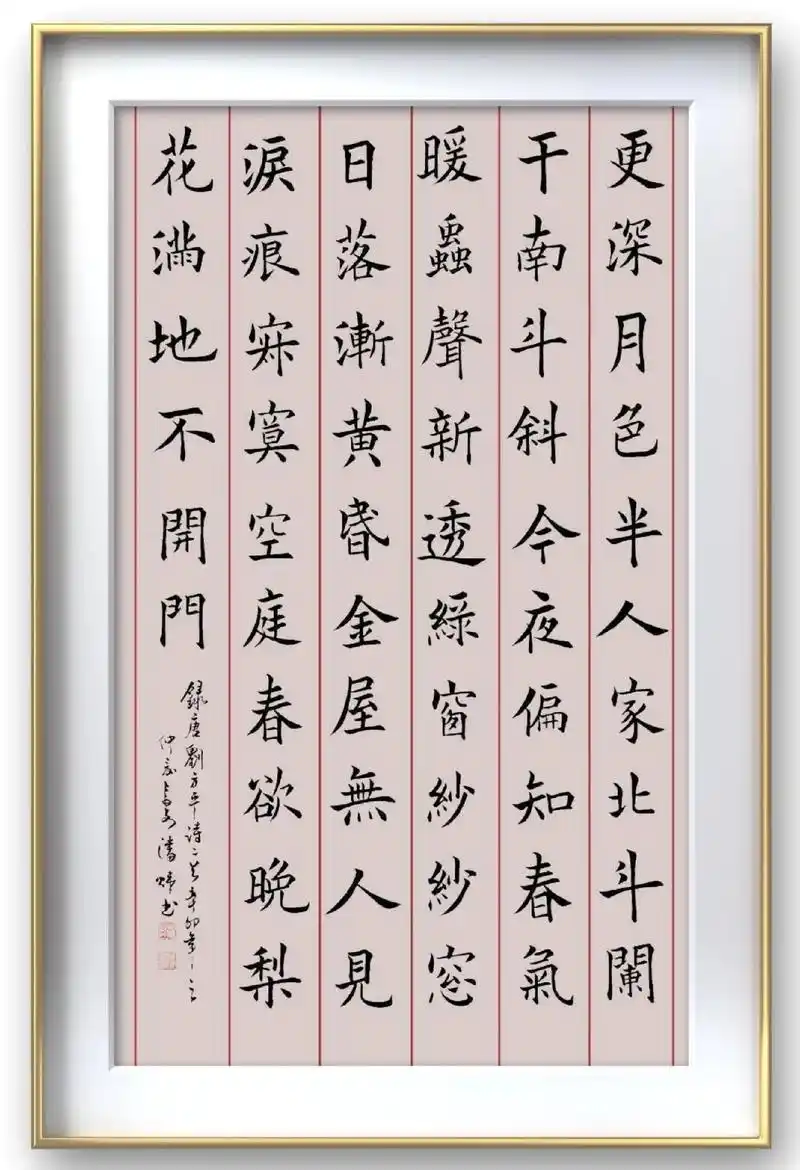 更深月色半人家北斗闌
干南斗斜今夜偏知春氣
暖蟲聲新透綠窗紗紗窓
日落漸黄昏金屋無人見
淚痕寂寞空庭春欲晚梨
花滿地不開門
錄唐劉方平詩二首辛卯年
仲
潘 書